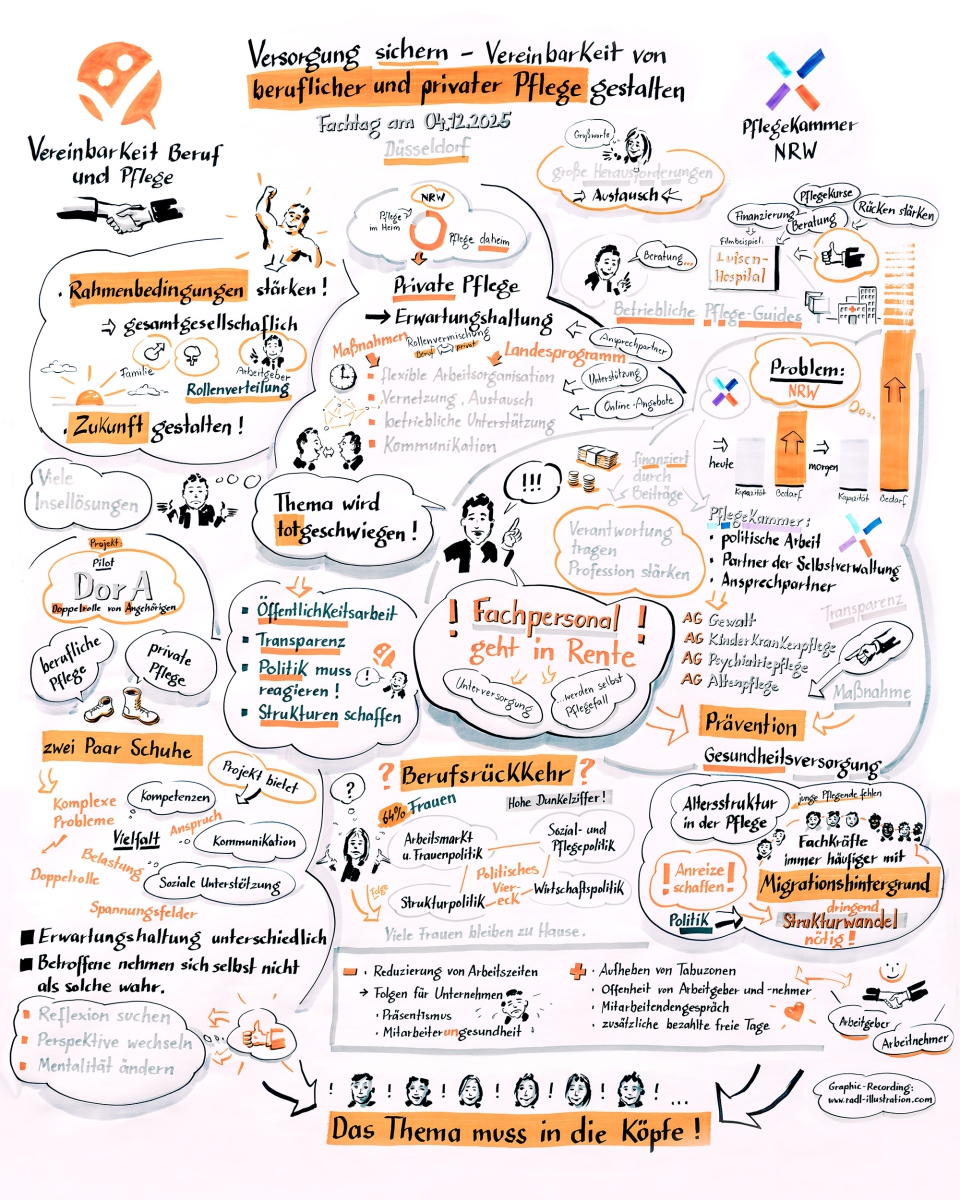 Versorgung sichern – Vereinbarkeit von
beruflicher und privater Pflege gestalten
Fachtag am 04.12.2025
Düsseldorf
Vereinbarkeit Beruf
und Pflege
PflegeKammer
NRW
Grußworte
große Herausforderungen
Austausch
Rahmenbedingungen stärken!
gesamtgesellschaftlich
Familie
Arbeitgeber
Rollenverteilung
Zukunft gestalten!
NRW
Pflege
im Heim
Pflege daheim
Private Pflege
Erwartungshaltung
Maßnahmen
Rollenvermischung
Beruf privat
Landesprogramm
flexible Arbeitsorganisation
Vernetzung, Austausch
betriebliche Unterstützung
Kommunikation
Ansprechpartner
Unterstützung
Online-Angebote
Beratung...
Finanzierung
PflegeKurse
Beratung
Rücken stärken
Filmbeispiel:
Luisen-
Hospital
Betriebliche Pflege-Guides
Problem:
NRW
heute
Kapazität
Bedarf
morgen
Kapazität
Bedarf
Viele
Insellösungen
Thema wird
totgeschwiegen!
!!!
finanziert
durch
Beiträge
Verantwortung
tragen
Profession stärken
PflegeKammer:
• politische Arbeit
• Partner der Selbstverwaltung
• Ansprechpartner
AG Gewalt
AG Kinderkrankenpflege
AG Psychiatriepflege
AG Altenpflege
Transparenz
Maßnahme
Prävention
Gesundheitsversorgung
Projekt:
Pilot
DorA
Doppelrolle von Angehörigen
berufliche
Pflege
private
Pflege
zwei Paar Schuhe
Öffentlichkeitsarbeit
Transparenz
Politik muss
reagieren!
Strukturen schaffen
!
! Fachpersonal !
geht in Rente
Unterversorgung
...werden selbst
Pflegefall
Komplexe
Probleme
Doppelrolle
Belastung
Spannungsfelder
Kompetenzen
Projekt bietet
Vielfalt
Anspruch
Kommunikation
Soziale Unterstützung
Erwartungshaltung unterschiedlich
Betroffene nehmen sich selbst nicht
als solche wahr.
Reflexion suchen
Perspektive wechseln
Mentalität ändern
? Berufsrückkehr ?
?
64% Frauen
Hohe Dunkelziffer!
Arbeitsmarkt
u. Frauenpolitik
Sozial- und
Pflegepolitik
Politisches
Vier-
eck
Strukturpolitik
Wirtschaftspolitik
Folge
Viele Frauen bleiben zu Hause.
Altersstruktur
in der Pflege
junge Pflegende fehlen
Fachkräfte
immer häufiger mit
Migrationshintergrund
! Anreize
schaffen !
Politik
dringend
Strukturwandel
nötig!
– • Reduzierung von Arbeitszeiten
→ Folgen für Unternehmen
• Präsentismus
• Mitarbeiterungesundheit
+ • Aufheben von Tabuzonen
• Offenheit von Arbeitgeber und -nehmer
• Mitarbeitendengespräch
• zusätzliche bezahlte freie Tage
Arbeitgeber
Arbeitnehmer
! ! ! ! ! ! ...
Das Thema muss in die Köpfe!
Graphic-Recording:
www.radl-illustration.com